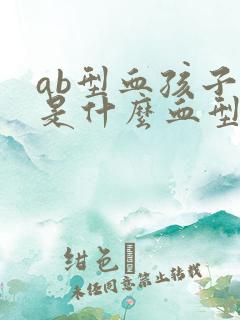 ab型血孩子
是什麼血型
绀色
未经同意禁止转载